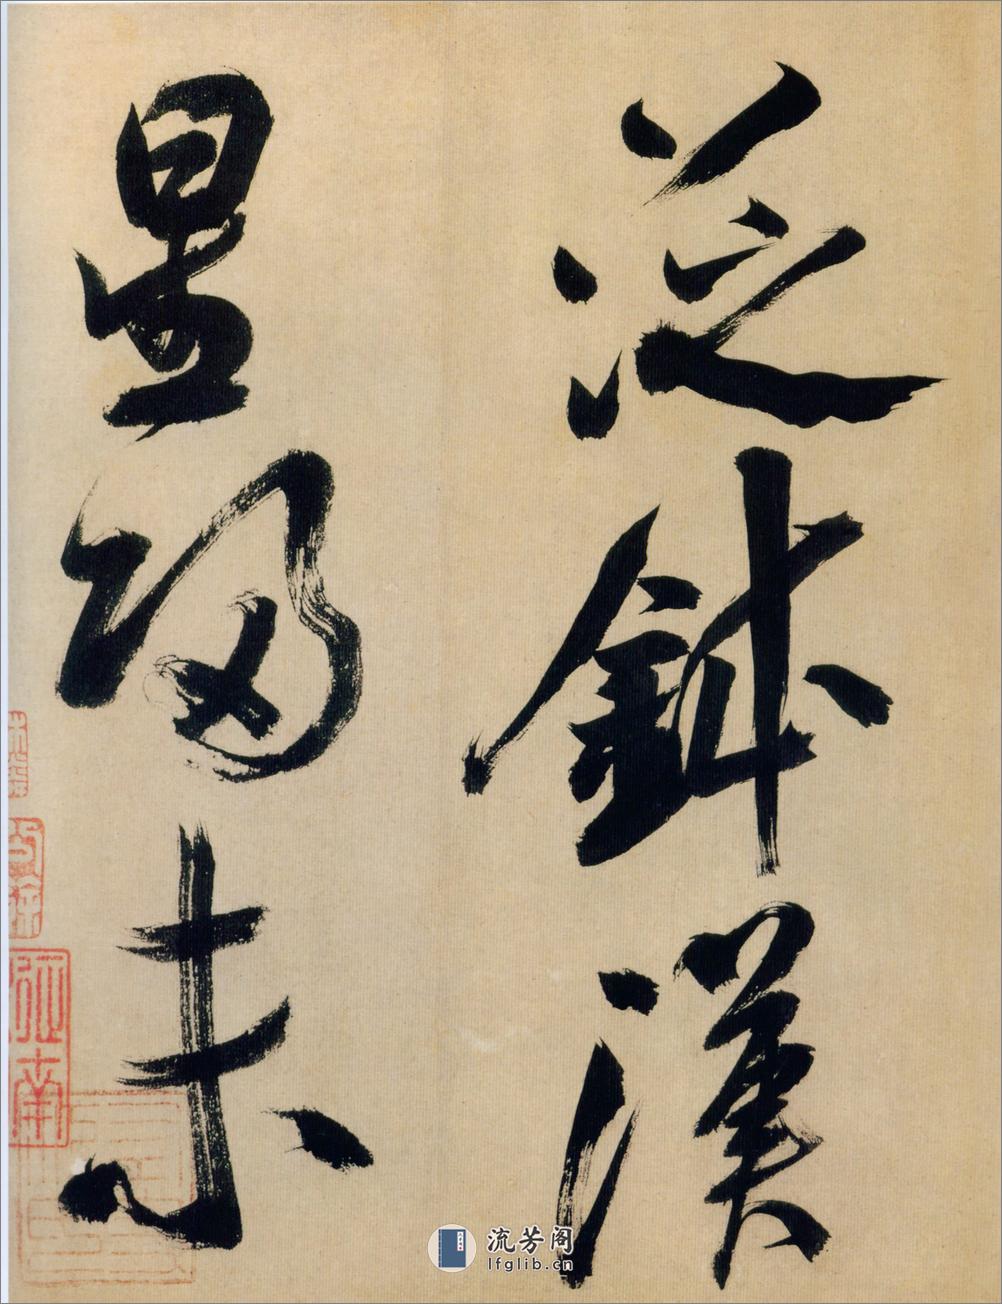 泛鉢漢
星歸未
流芳阁
lfglib.cn